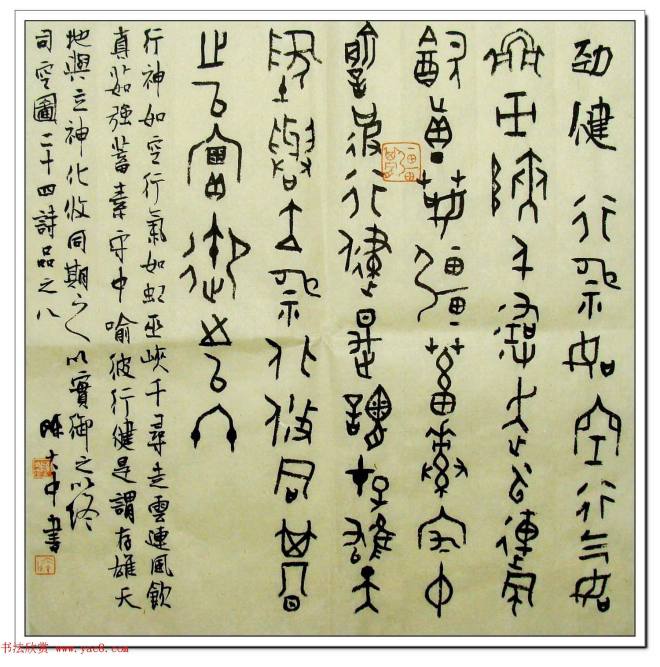 勁健 行神如空行气如
虹巫峽千尋走雲連風
飲真茹彊蓄素守中
喻彼行健是謂存雄天
地與立神化攸同期
之以實御之以終
行神如空行氣如虹巫峽千尋走雲連風飲
真茹強蓄素守中喻彼行健是謂存雄天
地與立神化攸同期之以實御之以終
司空圖二十四詩品之八
陳大中書
书法欣赏 www.yac8.com